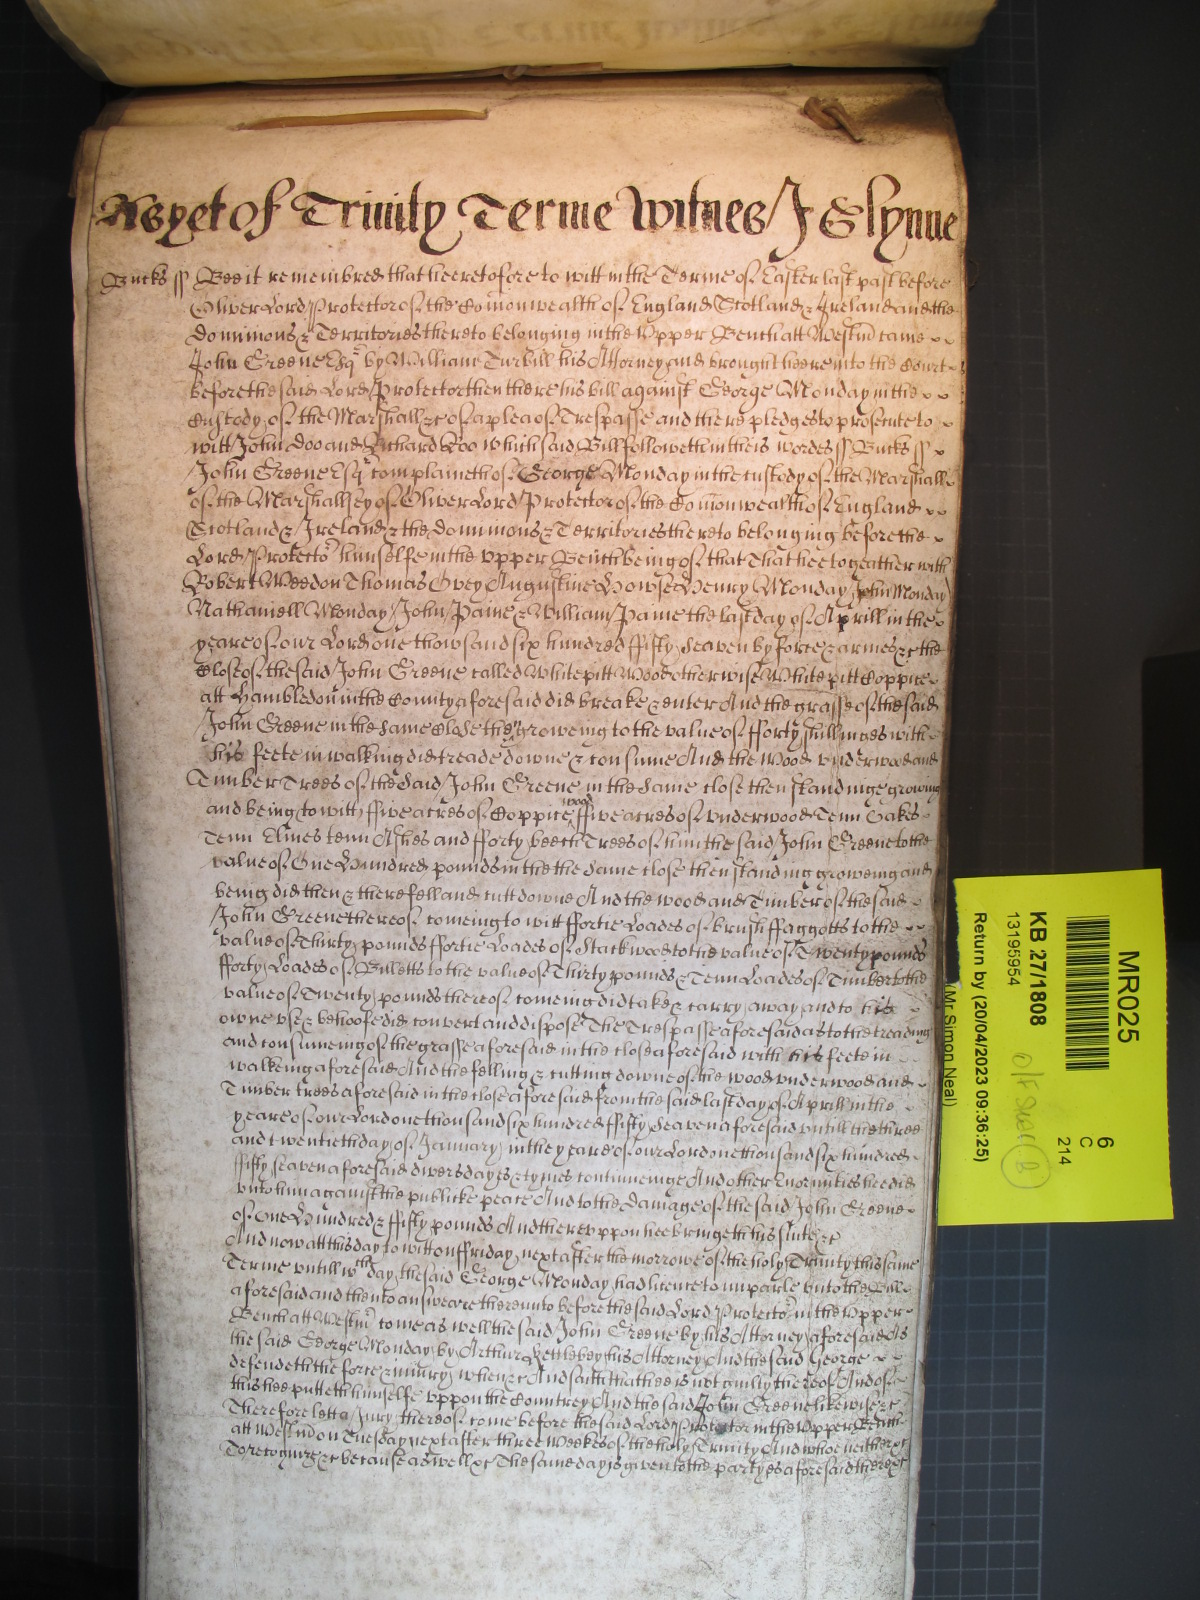 As yet of Trinity Terme Witnes J Glynne
Bucks ss Bee it remembred that heeretofore to witt in the Terme of Easter last past before
Oliver Lord Protector of the Comonwealth of England Scotland & Ireland and the
dominions & Territories thereto belonging in the Upper Bench att Westm came
John Greene Esq by William Turbill his Attorney and brought heere into the Court
before the said Lord Protector then there his bill against George Monday in the
Custody of the Marshall &c of a plea of Trespasse and there pledges to prosecute to
witt John Doo and Richard Roo which said Bill followeth in theis wordes ss Bucks ss
John Greene Esq complaineth of George Monday in the custody of the Marshall
of the Marshallsey of Oliver Lord Protector of the Comonwealth of England
Scotland & Ireland & the dominions & Territories thereto belonging before the
Lord Protector himselfe in the Upper Bench being of that That hee togeather with
Robert Weedon Thomas Ovey Augustine Howse Henry Monday John Monday
Nathaniell Monday John Paine & William Paine the last day of Aprill in the
yeare of our Lord one thowsand six hundred fifty seaven by force & armes &c the
Close of the said John Greene called Whitepitt Wood otherwise Whitepitt Coppice
att Hambledon in the County aforesaid did breake & enter And the grasse of the said
John Greene in the same Close then groweing to the value of fforty shillinges with
his feete in walking did treade downe & consume And the Wood underwood and
Timber Trees of the said John Greene in the same close then standinge growing
and being to witt ffive acres of Coppice wood ffive acres of underwood Tenn Oakes
Tenn Elmes tenn Ashes and fforty beech Trees of him the said John Greene to the
value of One Hundred pounds in the the same close then standing groweing and
being did then & there fell and cutt downe And the wood and Timber of the said
John Greene thereof comeing to witt ffortie Loades of brush ffaggotts to the
value of Thirty pounds ffortie Loades of Stackwood to the value of Twenty pounds
fforty Loades of Billetts to the value of Thirty pounds & Tenn Loades of Timber to the
value of Twenty pounds thereof comeing did take & carry away and to his
owne use & behoofe did convert and dispose The Trespasse aforesaid as to the treading
and consumeing of the grasse aforesaid in the close aforesaid with his feete in
walkeing aforesaid And the felling & cutting downe of the wood underwood and
Timber trees aforesaid in the close aforesaid from the said last day of Aprill in the
yeare of our Lord one thousand six hundred fifty seaven aforesaid untill the three
and twentieth day of January in the yeare of our Lord one thousand six hundred
fifty seaven aforesaid divers dayes & tymes continueinge And other Enormities hee did
unto him against the publicke peace And to the damage of the said John Greene
of One Hundred & fifty pounds And thereuppon hee bringeth his suite &c
And now att this day to witt on ffriday next after the morrow of the holy Trinity this same
Terme untill wch day the said George Monday had licence to imparle unto the Bill
aforesaid and then to answeare thereunto before the said Lord Protector in the Upper
Bench att Westm come as well the said John Greene by his Attorney aforesaid As
the said George Monday by Arthur Kettleby his Attorney And the said George
defendeth the force & injury when &c And saith that hee is not guilty thereof And of
this hee putteth himselfe uppon the Countrey And the said John Greene likewise &c
Therefore lett a Jury thereof come before the said Lord Protector in the Upper Bench
att Westm on Tuesday next after three Weekes of the holy Trinity And whoe neither &c
To recognize &c because aswell &c The same day is given to the partyes aforesaid there &c
MR025
6
C
214
KB 27/1808
13195954
Return by (20/04/2023 09:36:25)
(Mr Simon Neal)